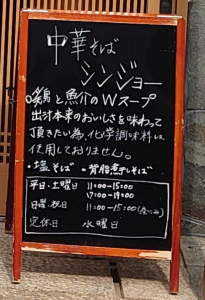 中華そば
シンジョー
○鶏と魚介のWスープ
出汁本来のおいしさを味わって
頂きたい為、化学調味料は
使用しておりません。
・塩そば ・背脂煮干しそば
平日・土曜日 11:00-15:00
17:00-19:00
日曜、祝日 11:00-15:00(昼のみ)
定休日 水曜日